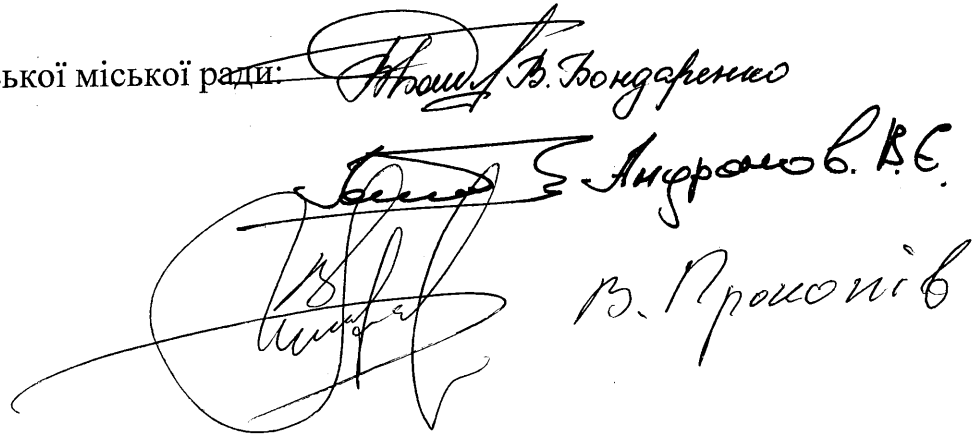 ької міської ради: В. Бондаренко
Андронов. В.Є.
В. Прокопів